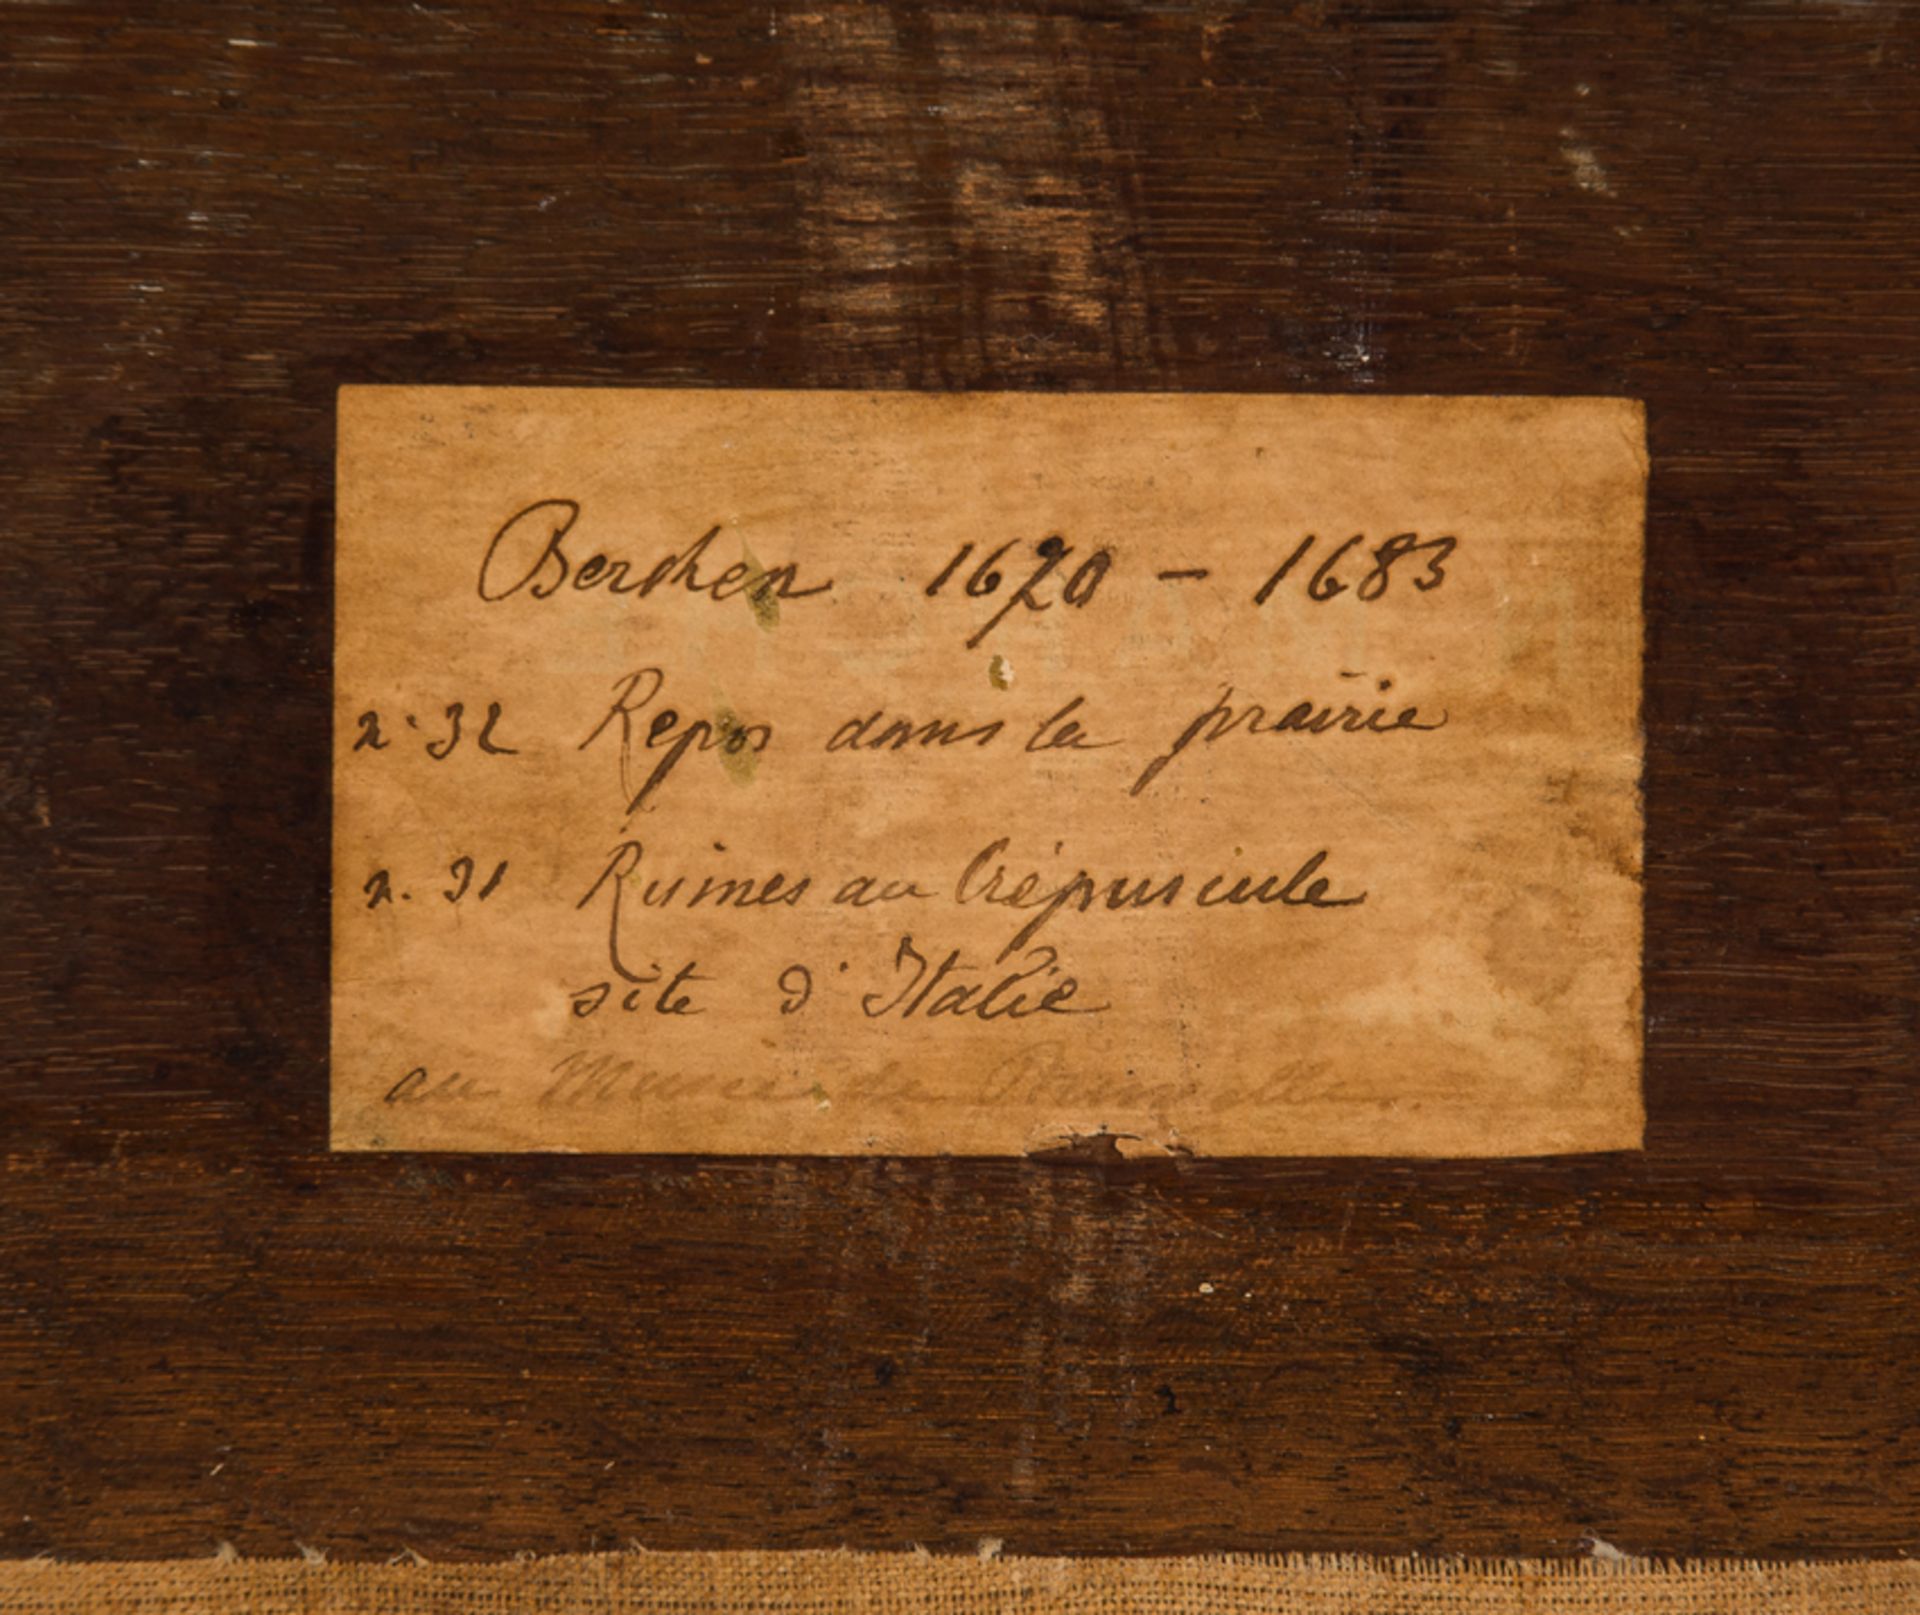 Berchen 1620 - 1683
n. 32 Repos dans la prairie
n. 31 Ruines au Crépuscule
site d'Italie
au Musée de Bruxelles.